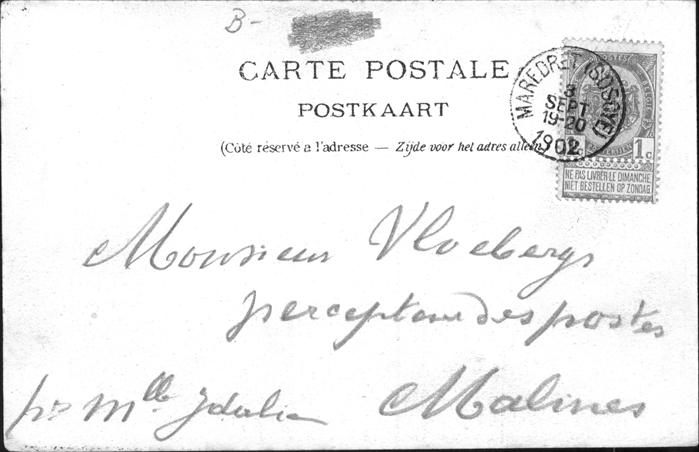 B-
CARTE POSTALE
POSTKAART
(Côté réservé a l'adresse — Zijde voor het adres alleen)
MAREDRET (SOSOYE)
3
SEPT
19-20
1902
POSTES
1c
NE PAS LIVRER LE DIMANCHE
NIET BESTELLEN OP ZONDAG
Monsieur Vloebergs
percepteur des postes
Malines
pr Mlle Idalie